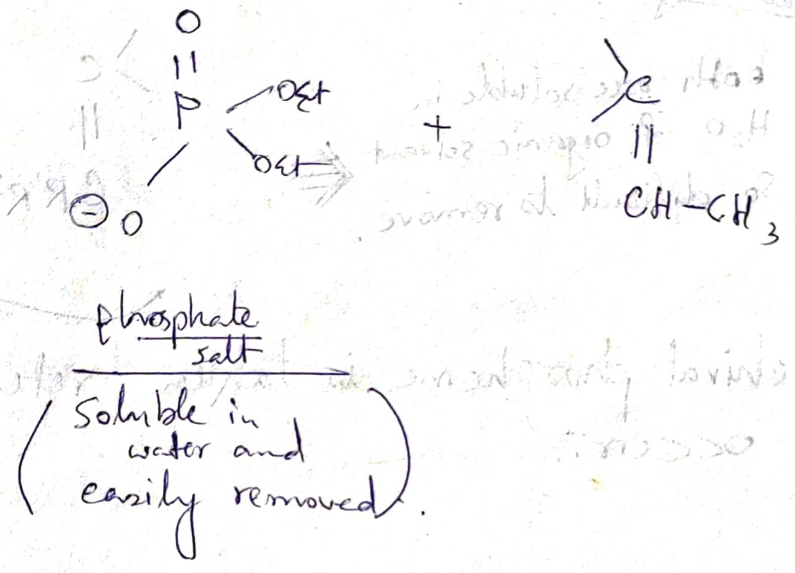 O
||
P
OEt
OEt
⊖ O
+
C
||
CH-CH3
phosphate
salt
(Soluble in
water and
easily removed).